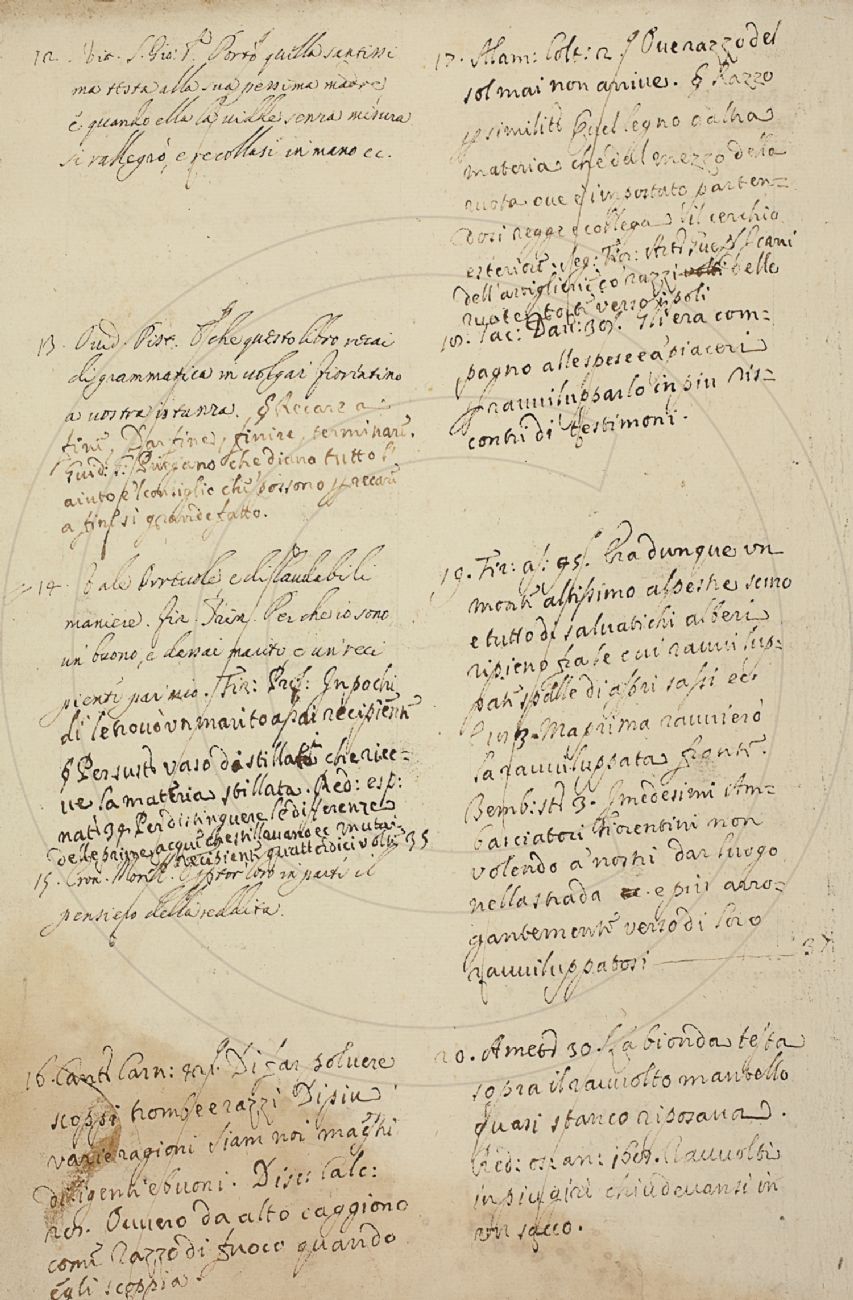 12. Vit. S. Gio: B. Portò quella santissi
ma testa alla sua pessima madre
e quando ella la vidde senza misura
si rallegrò, e recollasi in mano ec.
13. Ovid. Pist. che questo libro recai
di grammatica in volgar fiorentino
a vostra istanza. § Recare a
fine, Dar fine, finire, terminare.
Guid: G. Puegano che diano tutto l'
aiuto e 'l consiglio che possono p recare
a fine si grande fatto.
14. Vale Portuole e dissaudabili
maniere. fir. Trin. Perche io sono
un buono, e dassai marito, e un reci
piente par mio. Fir: Pros: In pochi
dì le trovò un marito assai recipiente
§ Per susto vaso da stillare che rice=
ve la materia stillata. Red: esp:
nat: 39. Per distinguere le diferenze
delle prime acque che stillavano ec in un tal
recipiente quattordici volte 35
15. Cron. Morell. loro in parte il
pensiero della reddita.
16. Cant: Carn: 42. Di far solvere
scoppi trombe e razzi Di piu
varie ragioni siam noi maestri
diligenti e buoni. Disc: Calc:
20. Ovvero da alto caggiono
come Razzo di fuoco quando
egli scoppia.
17. Alam: Colt: 2 § Ove razzo del
sol mai non arrive. § Razzo
p similit: Quel legno o altra
materia che dal mezzo della
ruota ove è impostato parten=
dosi regge e collega il cerchio
esteriore: Seg: Fior: Art: Gue: Scani
dell'artiglierie co' razzi delle
ruote torte verso i poli
18. Tac: Dav: 301. Gli era com=
pagno alle spese e a' piaceri
p ravvilupparlo in piu ris=
contri di testimoni.
19. Fir: as: 95. Era dunque un
monte altissimo alpestre semo
e tutto di salvatichi alberi
ripieno fra le cui ravvilup=
pate spalle di aspri sassi ec.
E 113. Ma prima ravvierò
la ravviluppata fronte.
Bemb: st: 3. I medesimi Am=
basciatori Fiorentini non
volendo a' nostri dar luogo
nella strada ec. e più arro=
gantemente verso di loro
ravviluppatosi 37
20. Amet: 30 La bionda testa
sopra il ravvolto mantello
quasi stanco riposava.
Red: os: an: 160. Ravvolti
in piu giri chiudevansi in
un sacco.